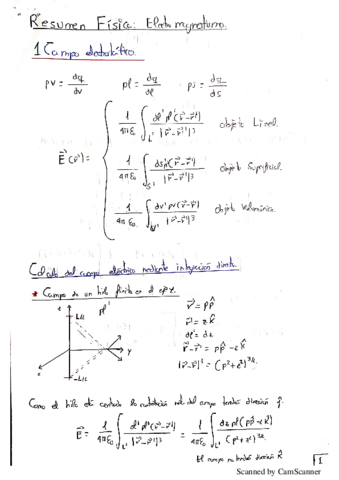 Resumen Física: Electromagnetismo.
1 Campo electrostático.
ρv = dq/dv    ρl = dq/dl    ρs = dq/ds
E(r) =
1/4πε ∫L' dl' ρl'(r-r')/|r-r'|³ objeto Lineal.
1/4πε₀ ∫S' ds' ρ(r-r')/|r-r'|³ objeto Superficial.
1/4πε₀ ∫V' dv' ρv(r-r')/|r-r'|³ objeto Volumétrico.
Cálculo del campo eléctrico mediante integración directa.
* Campo de un hilo finito en el eje z.
z
L/2
ρl'
y
x
-L/2
r = ρρ̂
r' = zk̂
dl' = dz
r-r' = ρρ̂ - zk̂
|r-r'|³ = (ρ²+z²)^3/2
Como el hilo está centrado la contribución neta del campo tendrá dirección ρ̂.
E = 1/4πε₀ ∫L' dl' ρl'(r-r')/|r-r'|³ = 1/4πε₀ ∫L' dz ρl(ρρ̂-zk̂)/(ρ²+z²)^3/2
El campo no tendrá dirección k̂
1
Scanned by CamScanner